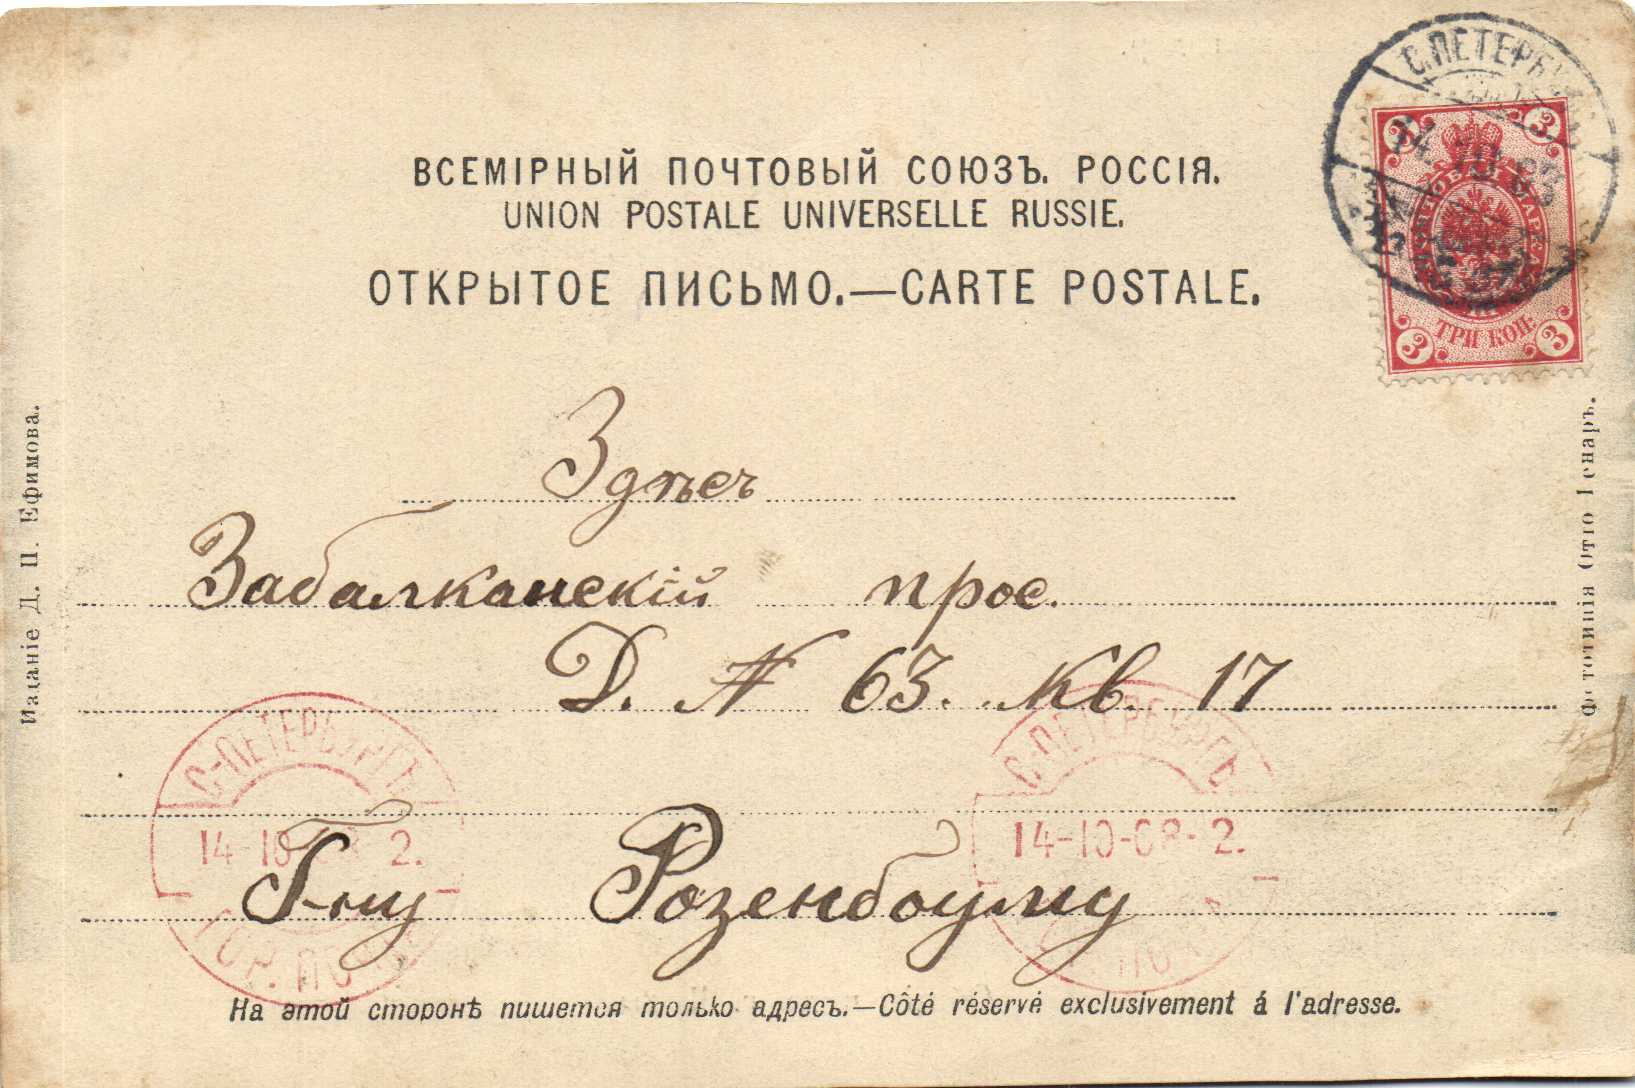 ВСЕМІРНЫЙ ПОЧТОВЫЙ СОЮЗЪ. РОССІЯ.
UNION POSTALE UNIVERSELLE RUSSIE.
ОТКРЫТОЕ ПИСЬМО.—CARTE POSTALE.
С.ПЕТЕРБУРГЪ
14.10.03
3 3
ПОЧТОВАЯ МАРКА
ТРИ КОП.
3 3
Изданіе Д. П. Ефимова.
Фототипія Отто Ренаръ.
Здѣсь
Забалканскій прос.
Д. № 63. кв. 17
С-ПЕТЕРБУРГЪ
14-10-03 2.
ГОР. ПОЧТА
С-ПЕТЕРБУРГЪ
14-10-03-2.
Г-ну Розенбоуму
На этой сторонѣ пишется только адресъ.—Côté réservé exclusivement á l'adresse.